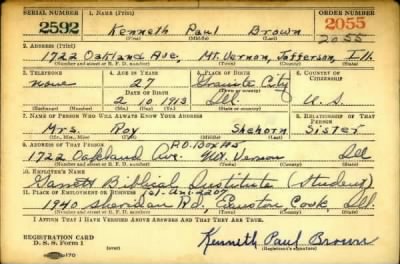 SERIAL NUMBER 1. NAME (Print) ORDER NUMBER
2592 Kenneth Paul Brown 2055
(First) (Middle) (Last) 2055
2. ADDRESS (Print)
1722 Oakland Ave, Mt. Vernon, Jefferson, Ill.
(Number and street or R. F. D. number) (Town) (County) (State)
3. TELEPHONE 4. AGE IN YEARS 5. PLACE OF BIRTH 6. COUNTRY OF CITIZENSHIP
none 27 Granite City
DATE OF BIRTH (Town or county)
2 10 1913 Ill U. S.
(Exchange) (Number) (Mo.) (Day) (Yr.) (State or country)
7. NAME OF PERSON WHO WILL ALWAYS KNOW YOUR ADDRESS 8. RELATIONSHIP OF THAT PERSON
Mrs. Roy Shehorn Sister
(Mr., Mrs., Miss) (First) (Middle) (Last)
9. ADDRESS OF THAT PERSON P.O. Box 115
1722 Oakland Av. Mt. Vernon Ill
(Number and street or R. F. D. number) (Town) (County) (State)
10. EMPLOYER'S NAME
Garrett Biblical Institute (Student)
11. PLACE OF EMPLOYMENT OR BUSINESS
1940 Sheridan Rd. Evanston, Cook, Ill.
(Number and street or R. F. D. number) (Town) (County) (State)
I AFFIRM THAT I HAVE VERIFIED ABOVE ANSWERS AND THAT THEY ARE TRUE.
REGISTRATION CARD Kenneth Paul Brown
D. S. S. Form 1 (over) (Registrant's signature)